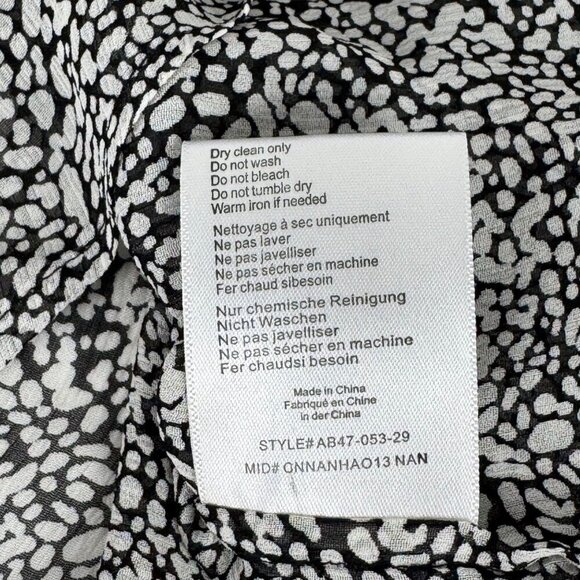 Dry clean only
Do not wash
Do not bleach
Do not tumble dry
Warm iron if needed
Nettoyage à sec uniquement
Ne pas laver
Ne pas javelliser
Ne pas sécher en machine
Fer chaud sibesoin
Nur chemische Reinigung
Nicht Waschen
Ne pas javelliser
Ne pas sécher en machine
Fer chaudsi besoin
Made in China
Fabriqué en Chine
in der China
STYLE# AB47-053-29
MID# CNNANHAO13 NAN